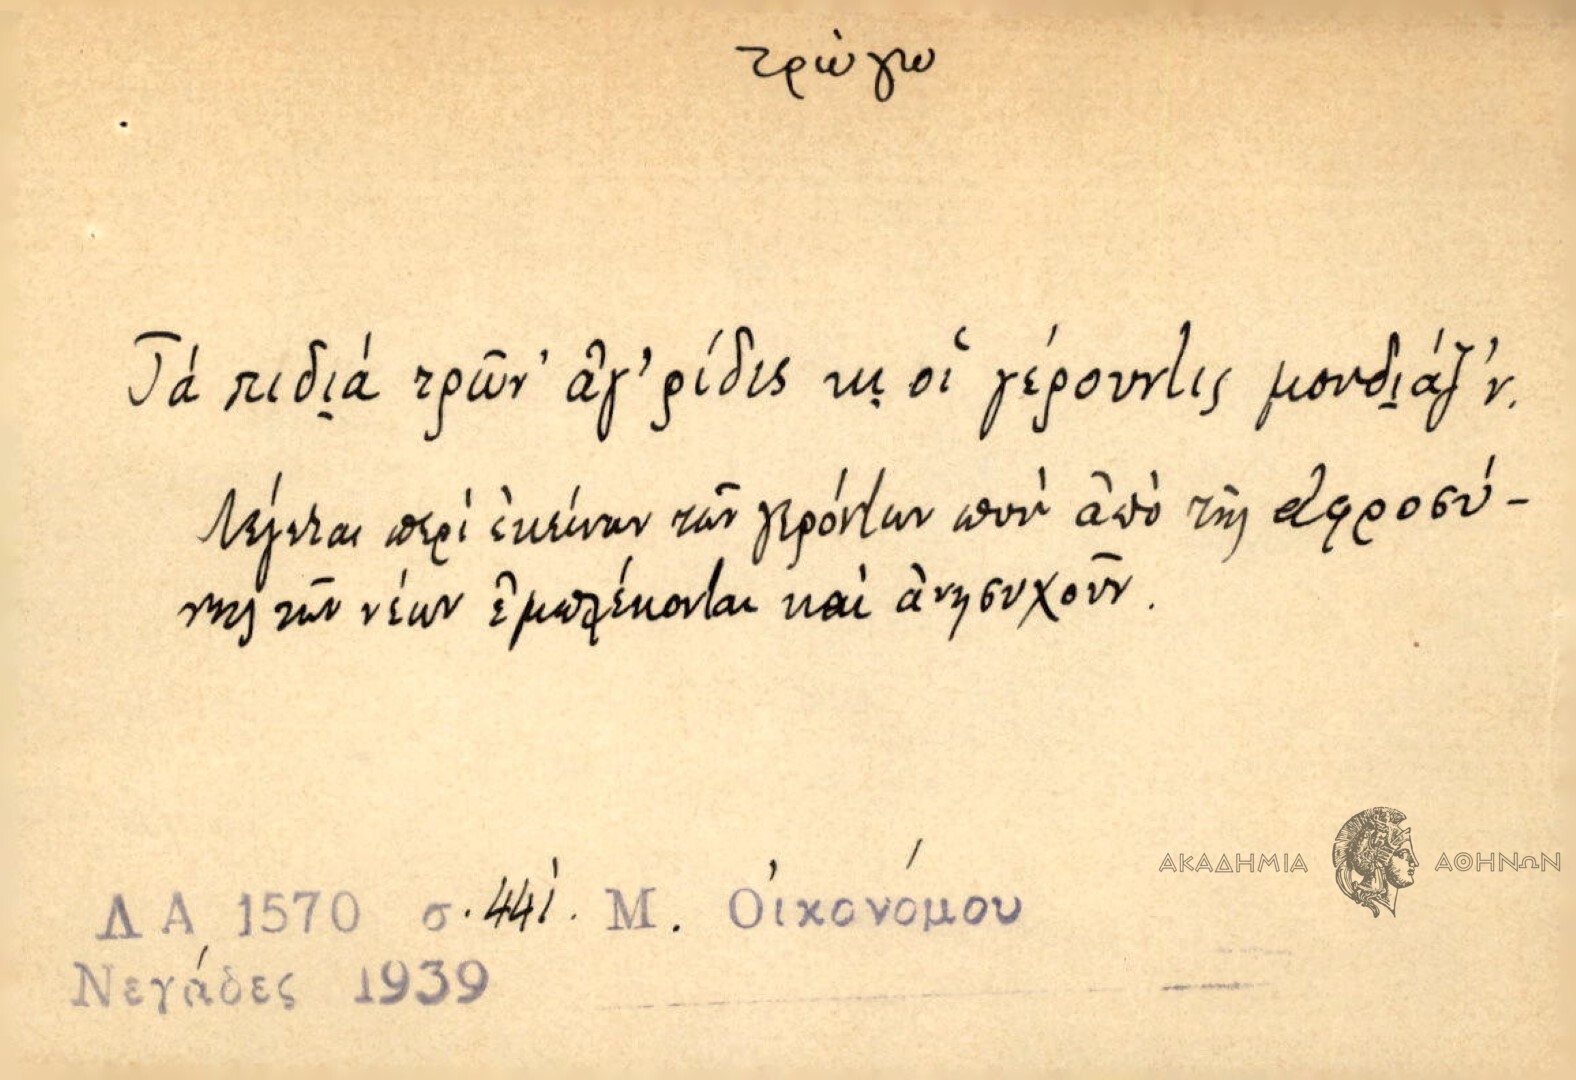 τρώγω
Τά πιδι̱ά τρῶν' ἀγ'ρίδις κι̱ οἱ γέρουντις μουδι̱άζ'ν.
Λέγεται περί ἐκείνων τῶν γερόντων πού ἀπό τῆς ἀφροσύ-
νης τῶν νέων ἐμπλέκονται καί ἀνησυχοῦν.
ΑΚΑΔΗΜΙΑ ΑΘΗΝΩΝ
Λ Α 1570 σ. 441. Μ. Οἰκονόμου
Νεγάδες 1939